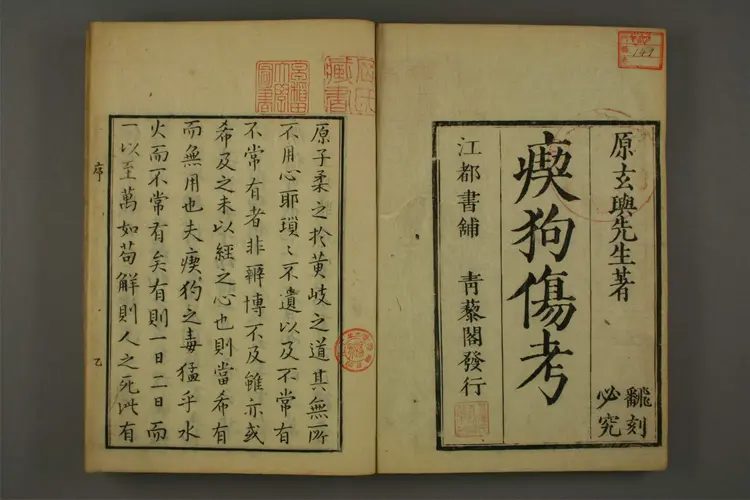 原玄與先生著
飜刻
必究
瘈狗傷考
江都書舖 青藜閣發行
原子柔之於黄岐之道其無所
不用心耶瑣〻不遺以及不常有
不常有者非辯博不及雖亦或
希及之未以經之心也則當希有
而無用也夫瘈狗之毒猛乎水
火而不常有矣有則一日二日而
一以至萬如苟解則人之死此有
序
乙
149